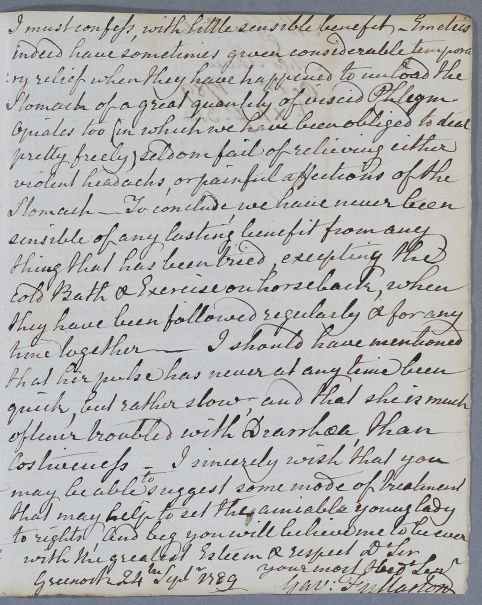 I must confess, with little sensible benefit - Emetics
indeed have sometimes given considerable tempora
ry relief when they have happened to unload the
Stomach of a great quantity of viscid Phlegm
Opiates too (in which we have been obliged to deal
pretty freely) seldom fail of relieving either
violent headachs or painful affections of the
Stomach - To conclude, we have never been
sensible of any lasting benefit from any
thing that has been tried, excepting the
cold Bath & Exercise on horseback, when
they have been followed regularly & for any
time together — I should have mentioned
that her pulse has never at any time been
quick, but rather slow, and that she is much
oftener troubled with Diarrhœa, than
Costiveness - I sincerely wish that you
may be able to suggest some mode of Treatment
that may help to set the amiable young lady
to rights And beg you will believe me to be ever
with the greatest Esteem & respect Dr Sir
your most Obedt Servt
Greenock 24th Septr 1789
Gav: Fullarton